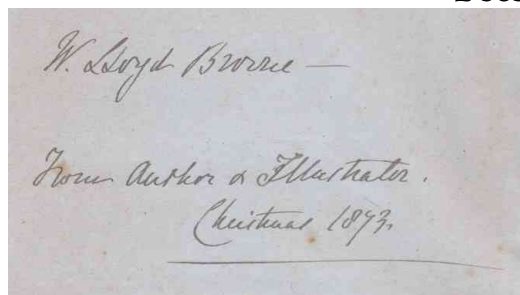 W. Lloyd Browne —
From Author & Illustrator.
Christmas 1873.